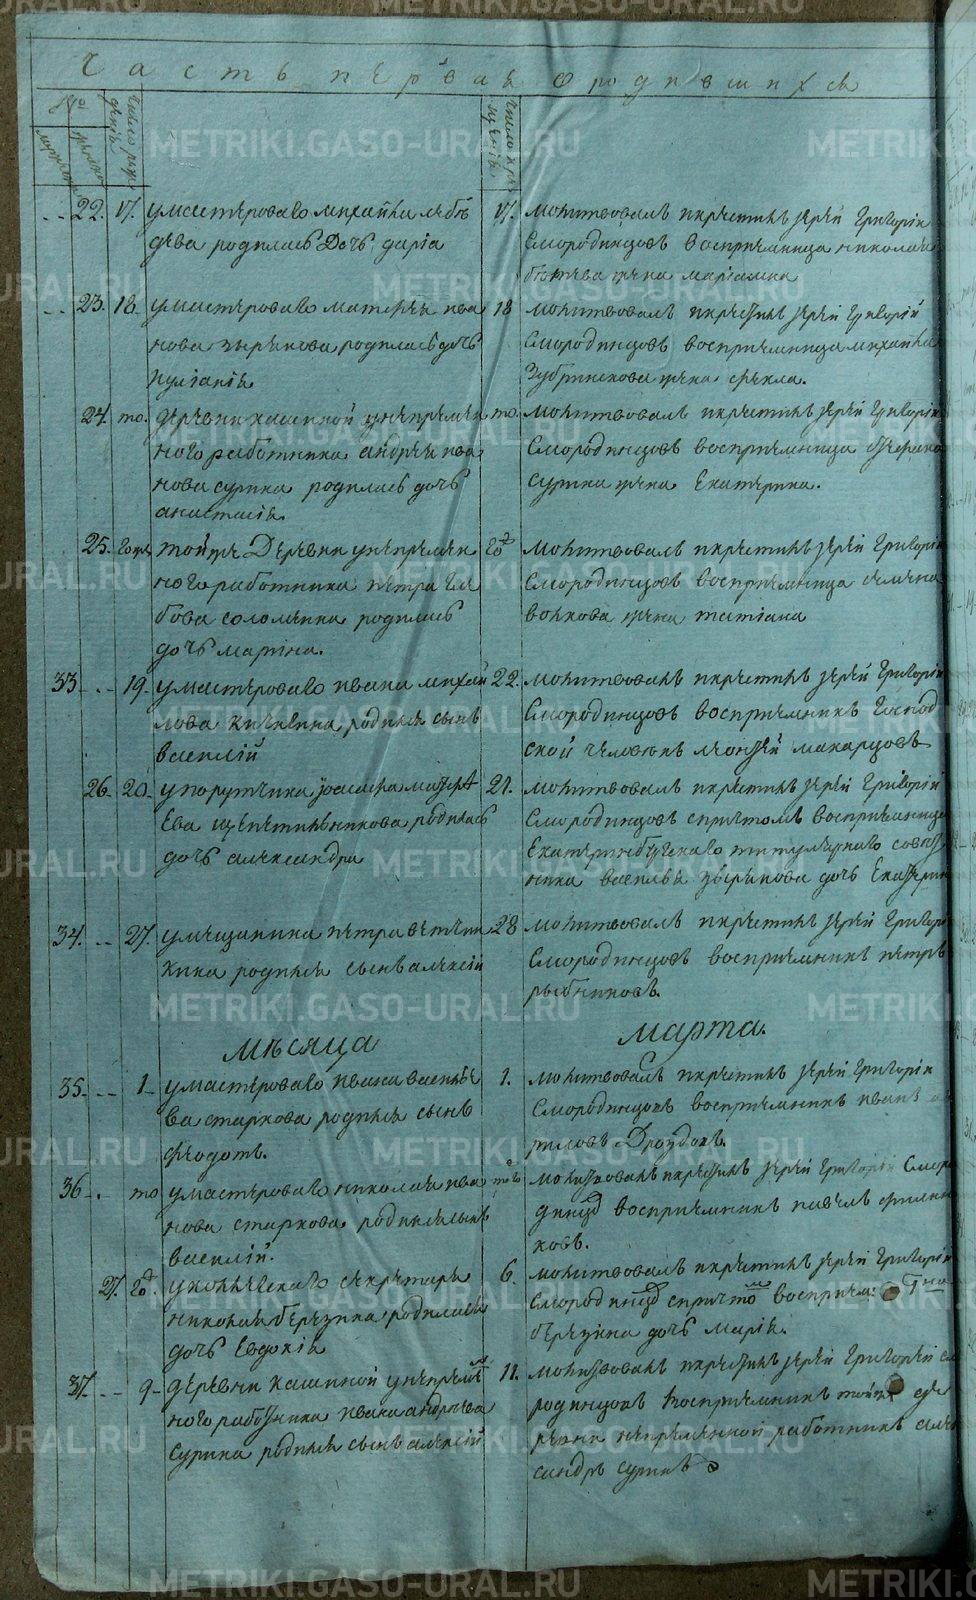 Часть первая о родившихся
№
22. 17. у мастероваго михаила лебе
дева родилась Дочь дарiа
17. молитвовалъ и крестилъ iерей Григорiй
Смородинцовъ восприемница николая
жена марiамна
23. 18. у мастероваго матвея ива
нова зырянова родилась дочь
иулiанiя
18 молитвовалъ и крестилъ iерей григорiй
Смородинцовъ восприемница михаила
Зубринскова жена фекла.
24. то. деревни кашиной у непремен
ного работника андрея ива
нова сурина родилась дочь
анастасiя.
то. молитвовалъ и крестилъ iерей григорiй
Смородинцовъ восприемница
Сурина жена Екатерина.
25. той же Деревни у непремен
ного работника петра гле
бова соломеина родилась
дочь марина.
молитвовалъ и крестилъ iерей Григорiй
Смородинцовъ восприемница
волкова жена татiана
33 19 у мастероваго ивана михай
лова родился сынъ
василiй
22. молитвовалъ и крестилъ iерей Григорiй
Смородинцовъ восприемникъ Господ
ской человекъ макарцовъ
26. 20. у порутчика
Ева щепетильникова родилась
дочь александра
21. молитвовалъ и крестилъ iерей Григорiй
Смородинцовъ с притомъ восприемница
Екатеринбургскаго титулярнаго совет
ника василья зырянова дочь Екатерин
34. 27. у мещанина петра
родился сынъ алексiй
28 молитвовалъ и крестилъ iерей Григорiй
Смородинцовъ восприемникъ петръ
рыбниковъ.
мѣсяца марта.
35 1 у мастероваго ивана василье
ва старкова родился сынъ
феодотъ.
1. молитвовалъ и крестилъ iерей Григорiй
Смородинцовъ восприемникъ иванъ
Дроздовъ.
36 то у мастероваго николая ива
нова старкова родился сынъ
василiй.
молитвовалъ и крестилъ iерей Григорiй Сморо
динцо восприемникъ павелъ филип
ковъ.
27. секретаря
николая березина родилась
дочь Евдокiя
6. молитвовалъ и крестилъ iерей Григорiй
Смородинцо с притто восприем:
березина дочь марiя.
37. 9 деревни кашиной у непремѣ
ного работника ивана андреева
сурина родился сынъ алексiй
11. молитвовалъ и крестилъ iерей Григорей см
родинцовъ восприемникъ той же де
ревни непременной работникъ алек
сандръ суринъ
METRIKI.GASO-URAL.RU